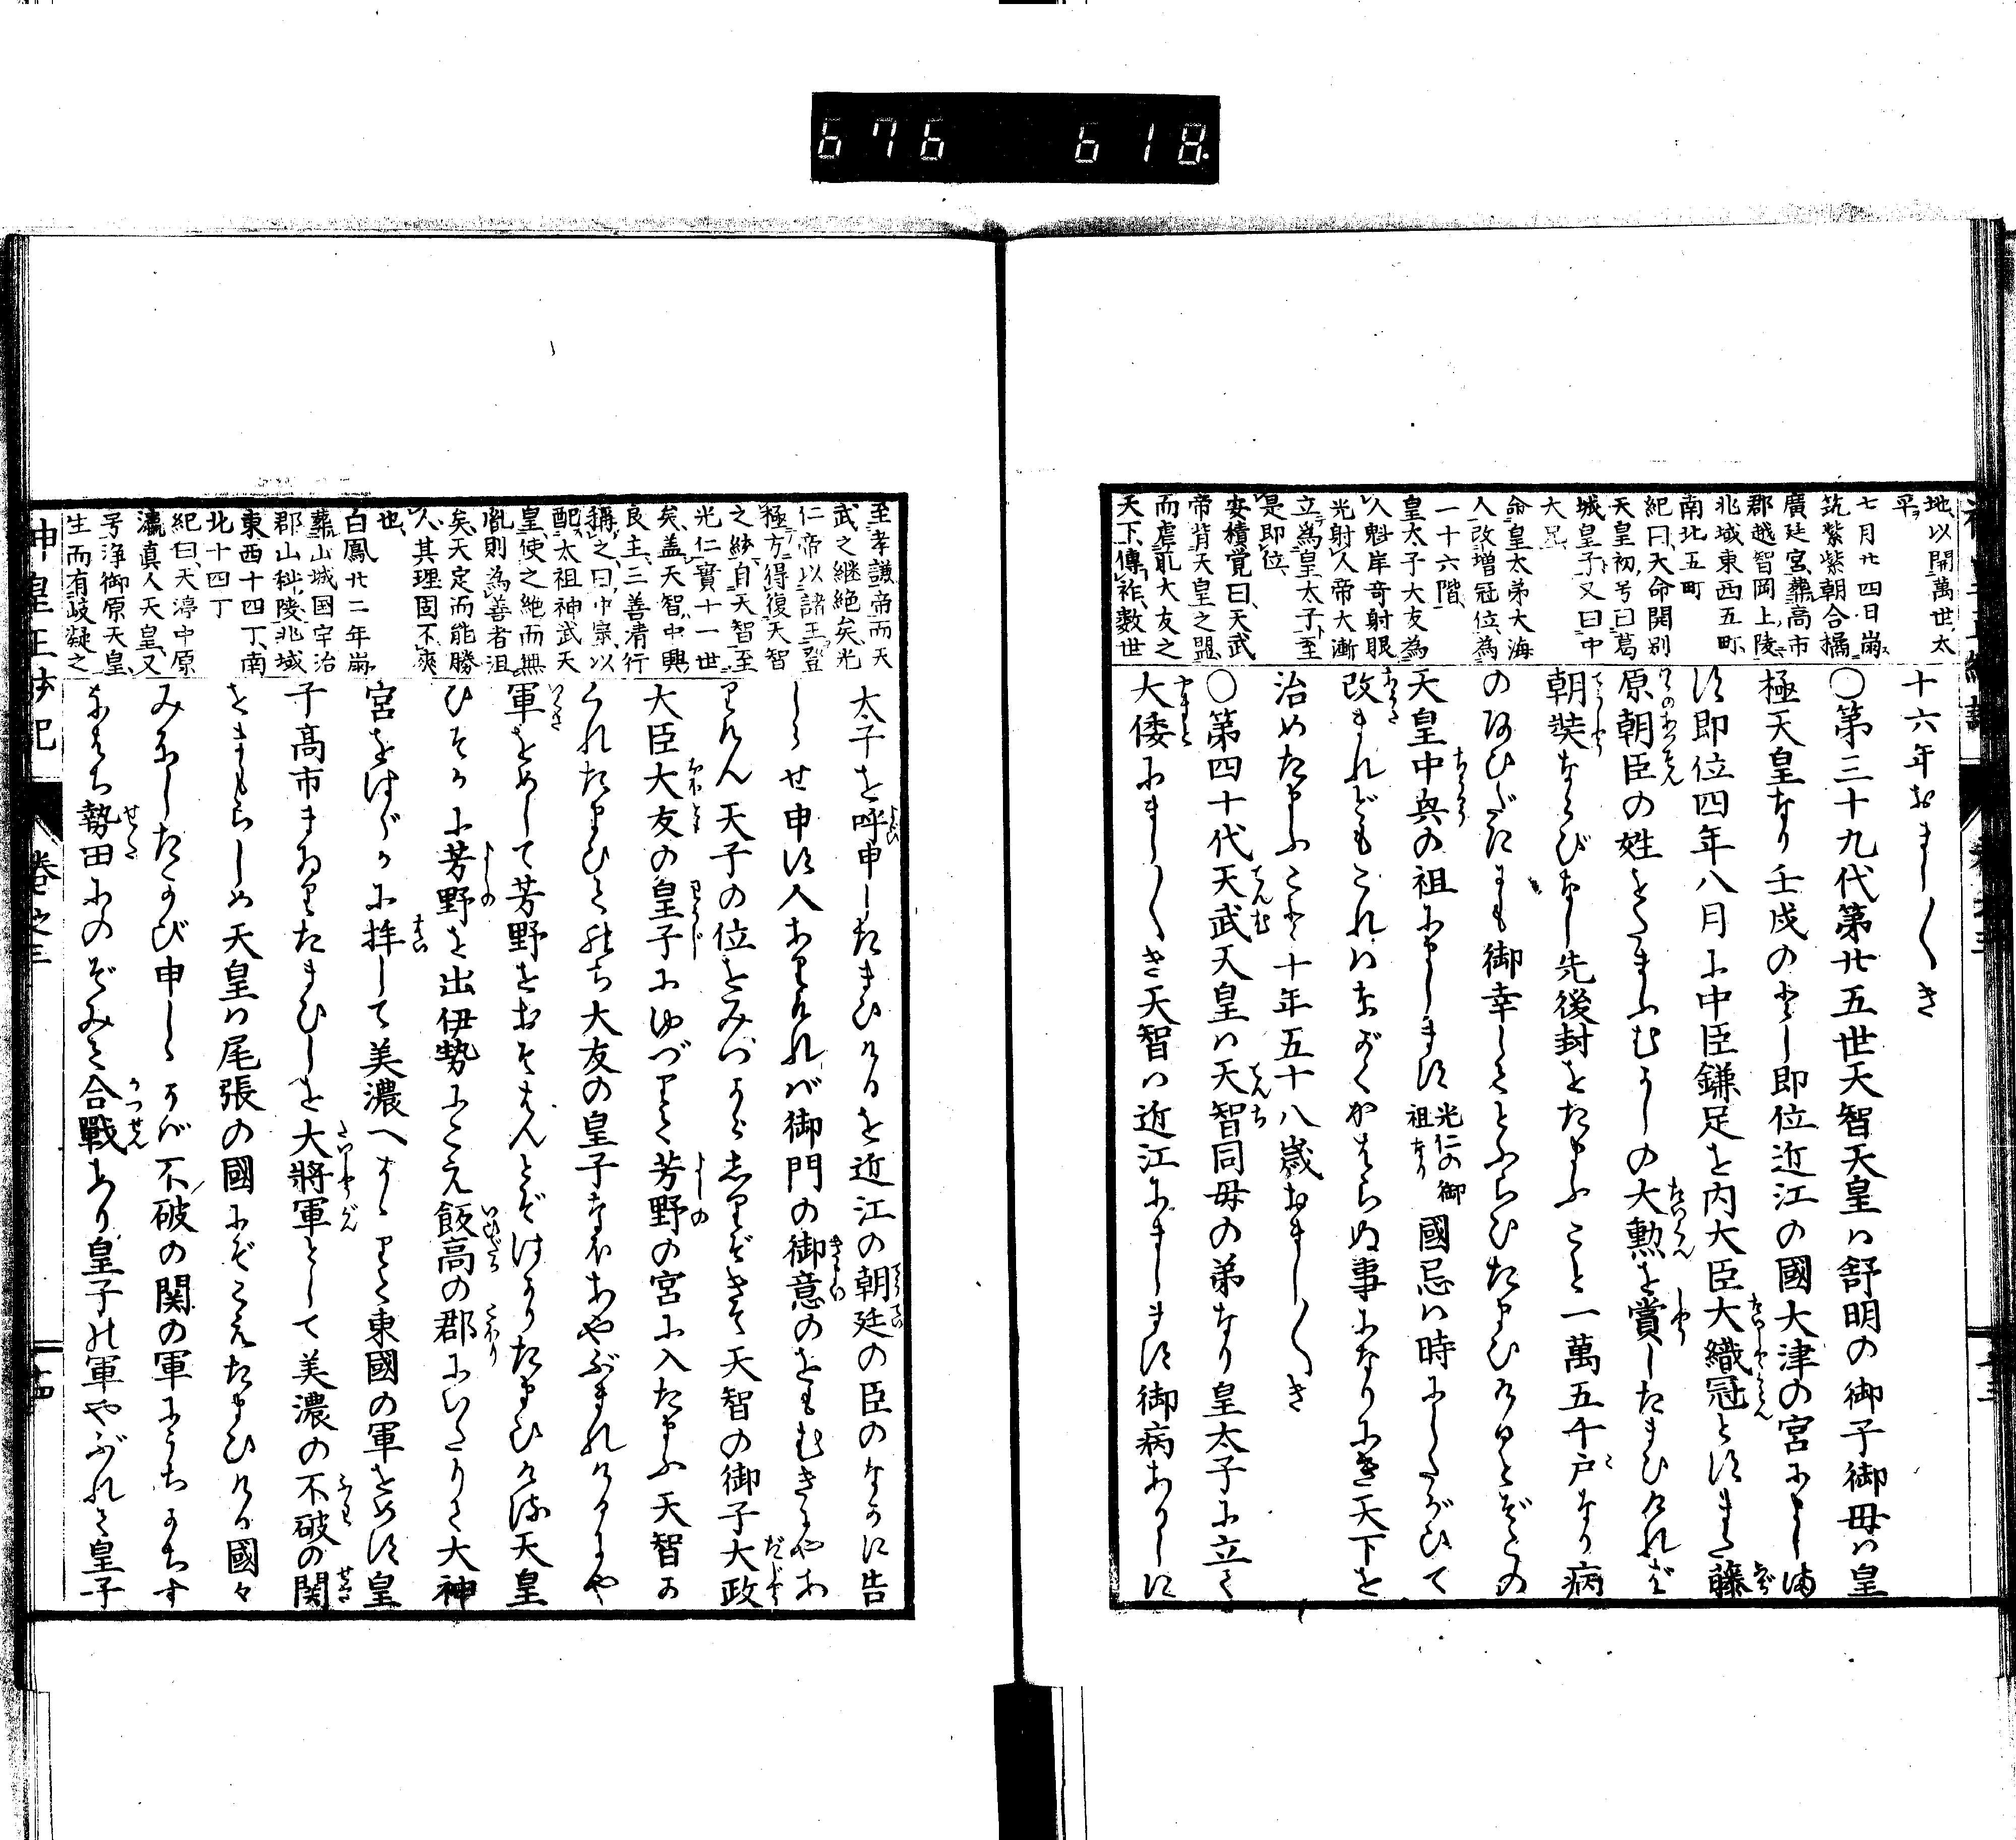 676 618.
地以開萬世太
平
七月廿四日崩
筑紫紫朝合橘
廣廷宮葬高市
郡越智岡上陵
兆域東西五町
南北五町
紀曰天命開別
天皇初号曰葛
城皇子又曰中
大兄
命皇太弟大海
人改増冠位為
一十六階
皇太子大友為
人魁岸奇射眼
光射人帝大漸
立為皇太子至
是即位
安積覚曰天武
帝背天皇之盟
而虐前大友之
天下傳祚数世
十六年おまし〳〵き
〇第三十九代第廿五世天智天皇ハ舒明の御子御母ハ皇
極天皇なり壬戌のとし即位近江の國大津の宮にまし満
す即位四年八月に中臣鎌足を内大臣大織冠とすまた藤
原朝臣の姓をたまふむかしの大勲を賞したまひければ
朝奘ならびなし先後封をたまふこと一萬五千戸なり病
のあひだにも御幸してとふらひたまひけるとぞこの
天皇中興の祖にまします光仁の御祖なり國忌ハ時にしたがひて
改まれどもこれハながくかはらぬ事になりにき天下を
治めたまふこと十年五十八歳おまし〳〵き
〇第四十代天武天皇ハ天智同母の弟なり皇太子に立て
大倭にまし〳〵き天智ハ近江にまします御病ありしに
至孝謙帝而天
武之継絶矣光
仁帝以諸王登
極方得復天智
之緒自天智至
光仁實十一世
矣蓋天智中興
良主三善清行
稱之曰中宗以
配太祖神武天
皇使之絶而無
胤則為善者沮
矣天定而能勝
人其理固不爽
也
白鳳廿二年崩
葬山城国宇治
郡山科陵兆域
東西十四丁南
北十四丁
紀曰天渟中原
瀛真人天皇又
号浄御原天皇
生而有岐嶷之
太子を呼申したまひけるを近江の朝廷の臣のなかに告
しらせ申す人ありければ御門の御意のをもむきにやあ
りけん天子の位をみづからしりぞきて天智の御子大政
大臣大友の皇子にゆづりて芳野の宮に入たまふ天智か
くれたまひてのち大友の皇子なほあやぶまれけるにや
軍をめして芳野をおそはんとぞはかりたまひける天皇
ひそかに芳野を出伊勢にこえ飯高の郡にいたりて大神
宮をはるかに拝して美濃へかゝりて東國の軍をめす皇
子高市まゐりたまひしを大將軍として美濃の不破の関
をまもらしめ天皇ハ尾張の國にぞこえたまひける國々
みなしたかひ申しゝかば不破の関の軍にうちかちす
なはち勢田にのぞみて合戰あり皇子の軍やぶれて皇子
神皇正抄記 巻之三 十四